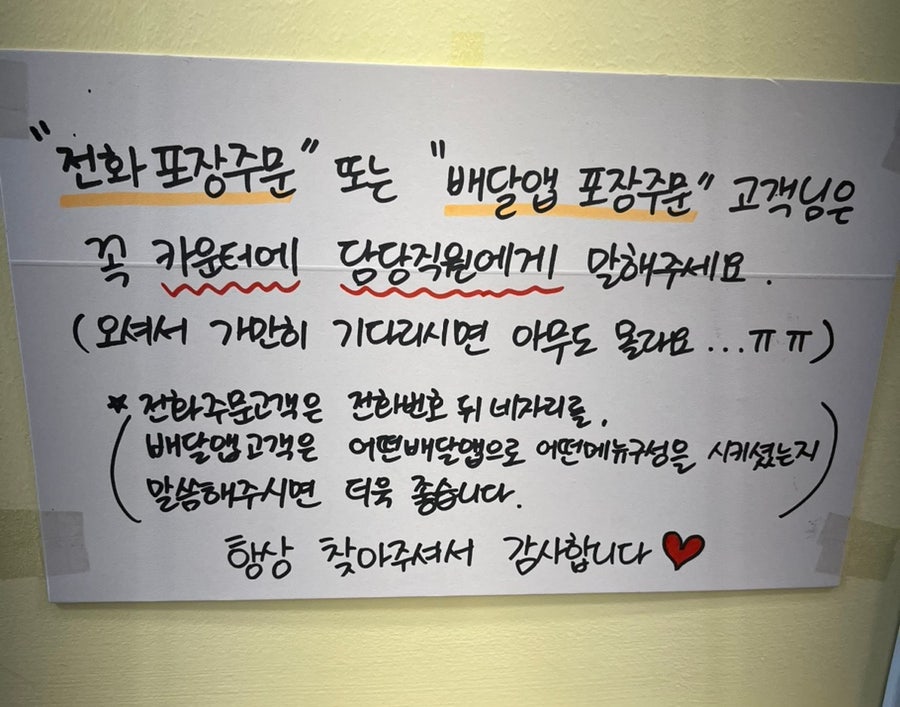 "전화 포장주문" 또는 "배달앱 포장주문" 고객님은
꼭 카운터에 담당직원에게 말해주세요.
(오셔서 가만히 기다리시면 아무도 몰라요...ㅠㅠ)
* 전화주문고객은 전화번호 뒤 네자리를,
(배달앱고객은 어떤배달앱으로 어떤메뉴구성을 시키셨는지
말씀해주시면 더욱 좋습니다.)
항상 찾아주셔서 감사합니다♥